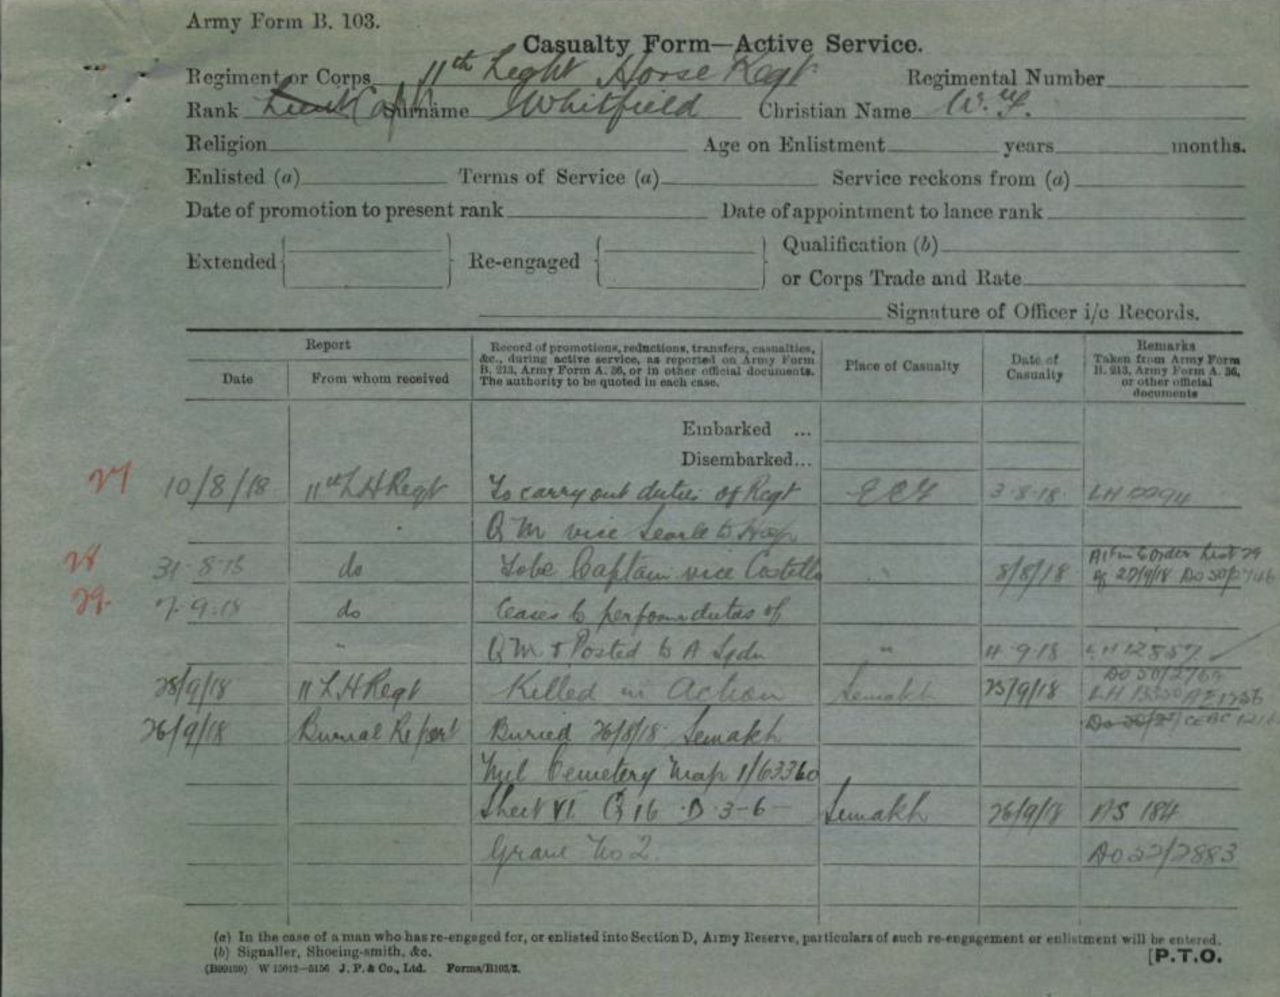 Army Form B. 103.
Casualty Form—Active Service.
Regiment or Corps 11th Light Horse Regt Regimental Number
Rank Lieut Capt Surname Whitfield Christian Name W. F.
Religion Age on Enlistment years months.
Enlisted (a) Terms of Service (a) Service reckons from (a)
Date of promotion to present rank Date of appointment to lance rank
Extended Re-engaged Qualification (b)
or Corps Trade and Rate
Signature of Officer i/c Records.
Report
Date From whom received
Record of promotions, reductions, transfers, casualties,
&c., during active service, as reported on Army Form
B. 213, Army Form A. 36, or in other official documents.
The authority to be quoted in each case.
Place of Casualty
Date of
Casualty
Remarks
Taken from Army Form
B. 213, Army Form A. 36,
or other official
documents
Embarked ...
Disembarked...
27 10/8/18 11th L H Regt To carry out duties of Regt 3-8-18 LH
Q M vice Searle to Hosp
28 31-8-18 do To be Captain vice Costello 8/8/18 Order List 29
of 27/9/18
29. 7-9-18 do Ceases to perform duties of
" Q M & Posted to A Sqdn " 11-9-18 LH 12857
DO 50/2769
28/9/18 11 L H Regt Killed in Action Semakh 25/9/18 LH
26/9/18 Burial Report Buried 26/8/18 Semakh
Mil Cemetery Map 1/63360
Sheet VI Q 16 D 3-6 Semakh 26/9/18 AS 184
Grave No 2. DO 52/2883
(a) In the case of a man who has re-engaged for, or enlisted into Section D, Army Reserve, particulars of such re-engagement or enlistment will be entered.
(b) Signaller, Shoeing-smith, &c.
J. P. & Co., Ltd. Forms/B103/2.
[P.T.O.